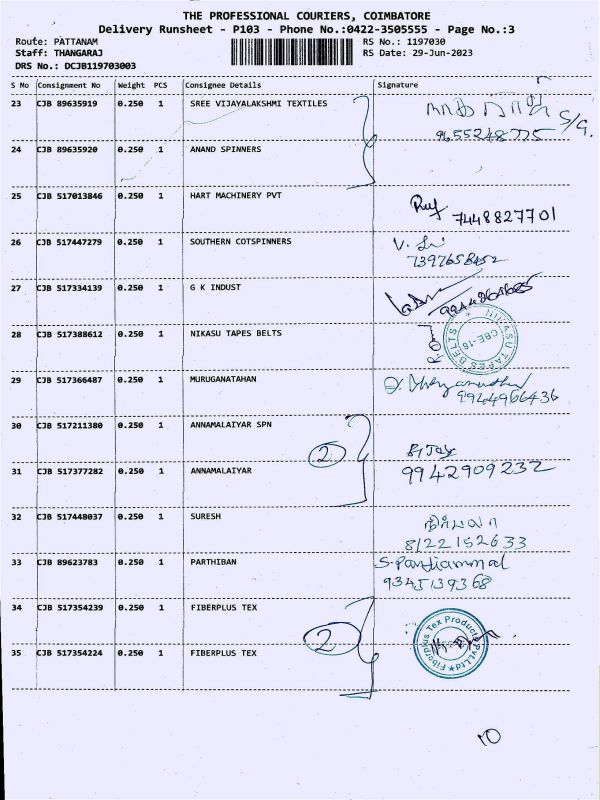 THE PROFESSIONAL COURIERS, COIMBATORE
Delivery Runsheet - P103 - Phone No.:0422-3505555 - Page No.:3
Route: PATTANAM RS No.: 1197030
Staff: THANGARAJ RS Date: 29-Jun-2023
DRS No.: DCJB119703003
S No Consignment No Weight PCS Consignee Details Signature
23 CJB 89635919 0.250 1 SREE VIJAYALAKSHMI TEXTILES
S/G.
9655248775
24 CJB 89635920 0.250 1 ANAND SPINNERS
25 CJB 517013846 0.250 1 HART MACHINERY PVT
7448827701
26 CJB 517447279 0.250 1 SOUTHERN COTSPINNERS
7397658452
27 CJB 517334139 0.250 1 G K INDUST
28 CJB 517388612 0.250 1 NIKASU TAPES BELTS
NIKASU TAPES BELTS
CBE-16
29 CJB 517366487 0.250 1 MURUGANATAHAN
9944966436
30 CJB 517211380 0.250 1 ANNAMALAIYAR SPN
2
31 CJB 517377282 0.250 1 ANNAMALAIYAR
9942909232
32 CJB 517448037 0.250 1 SURESH
8122152633
33 CJB 89623783 0.250 1 PARTHIBAN
9345139368
34 CJB 517354239 0.250 1 FIBERPLUS TEX
Fiberplus Tex Products Pvt.Ltd
2
35 CJB 517354224 0.250 1 FIBERPLUS TEX
10